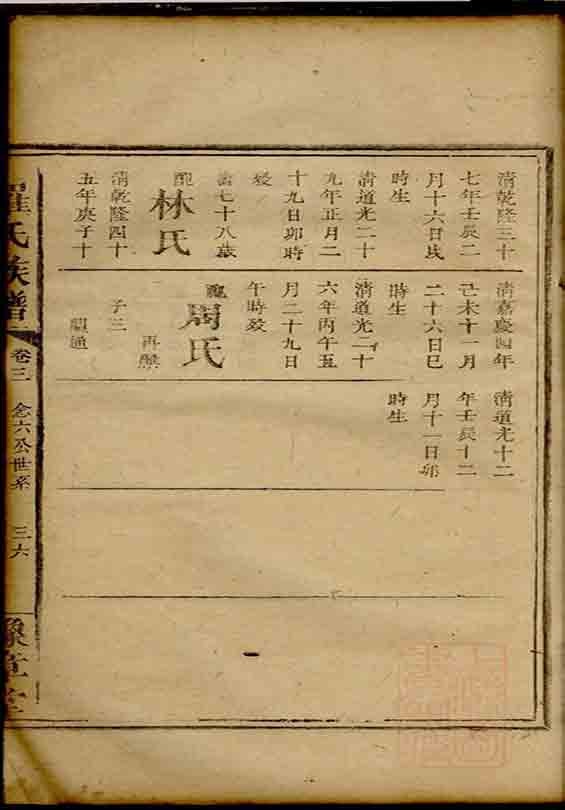 清乾隆三十
七年壬辰二
月十六日戌
時生
清道光二十
九年正月二
十九日卯時
歿
壽七十八歲
配
林氏
清乾隆四十
五年庚子十
清嘉慶四年
己未十一月
二十六日巳
時生
清道光二十
六年丙午五
月二十九日
午時歿
配
周氏
再醮
子三
顯通
清道光十二
年壬辰十二
月十一日卯
時生
羅氏族譜
卷三
念六公世系
三六
豫章堂